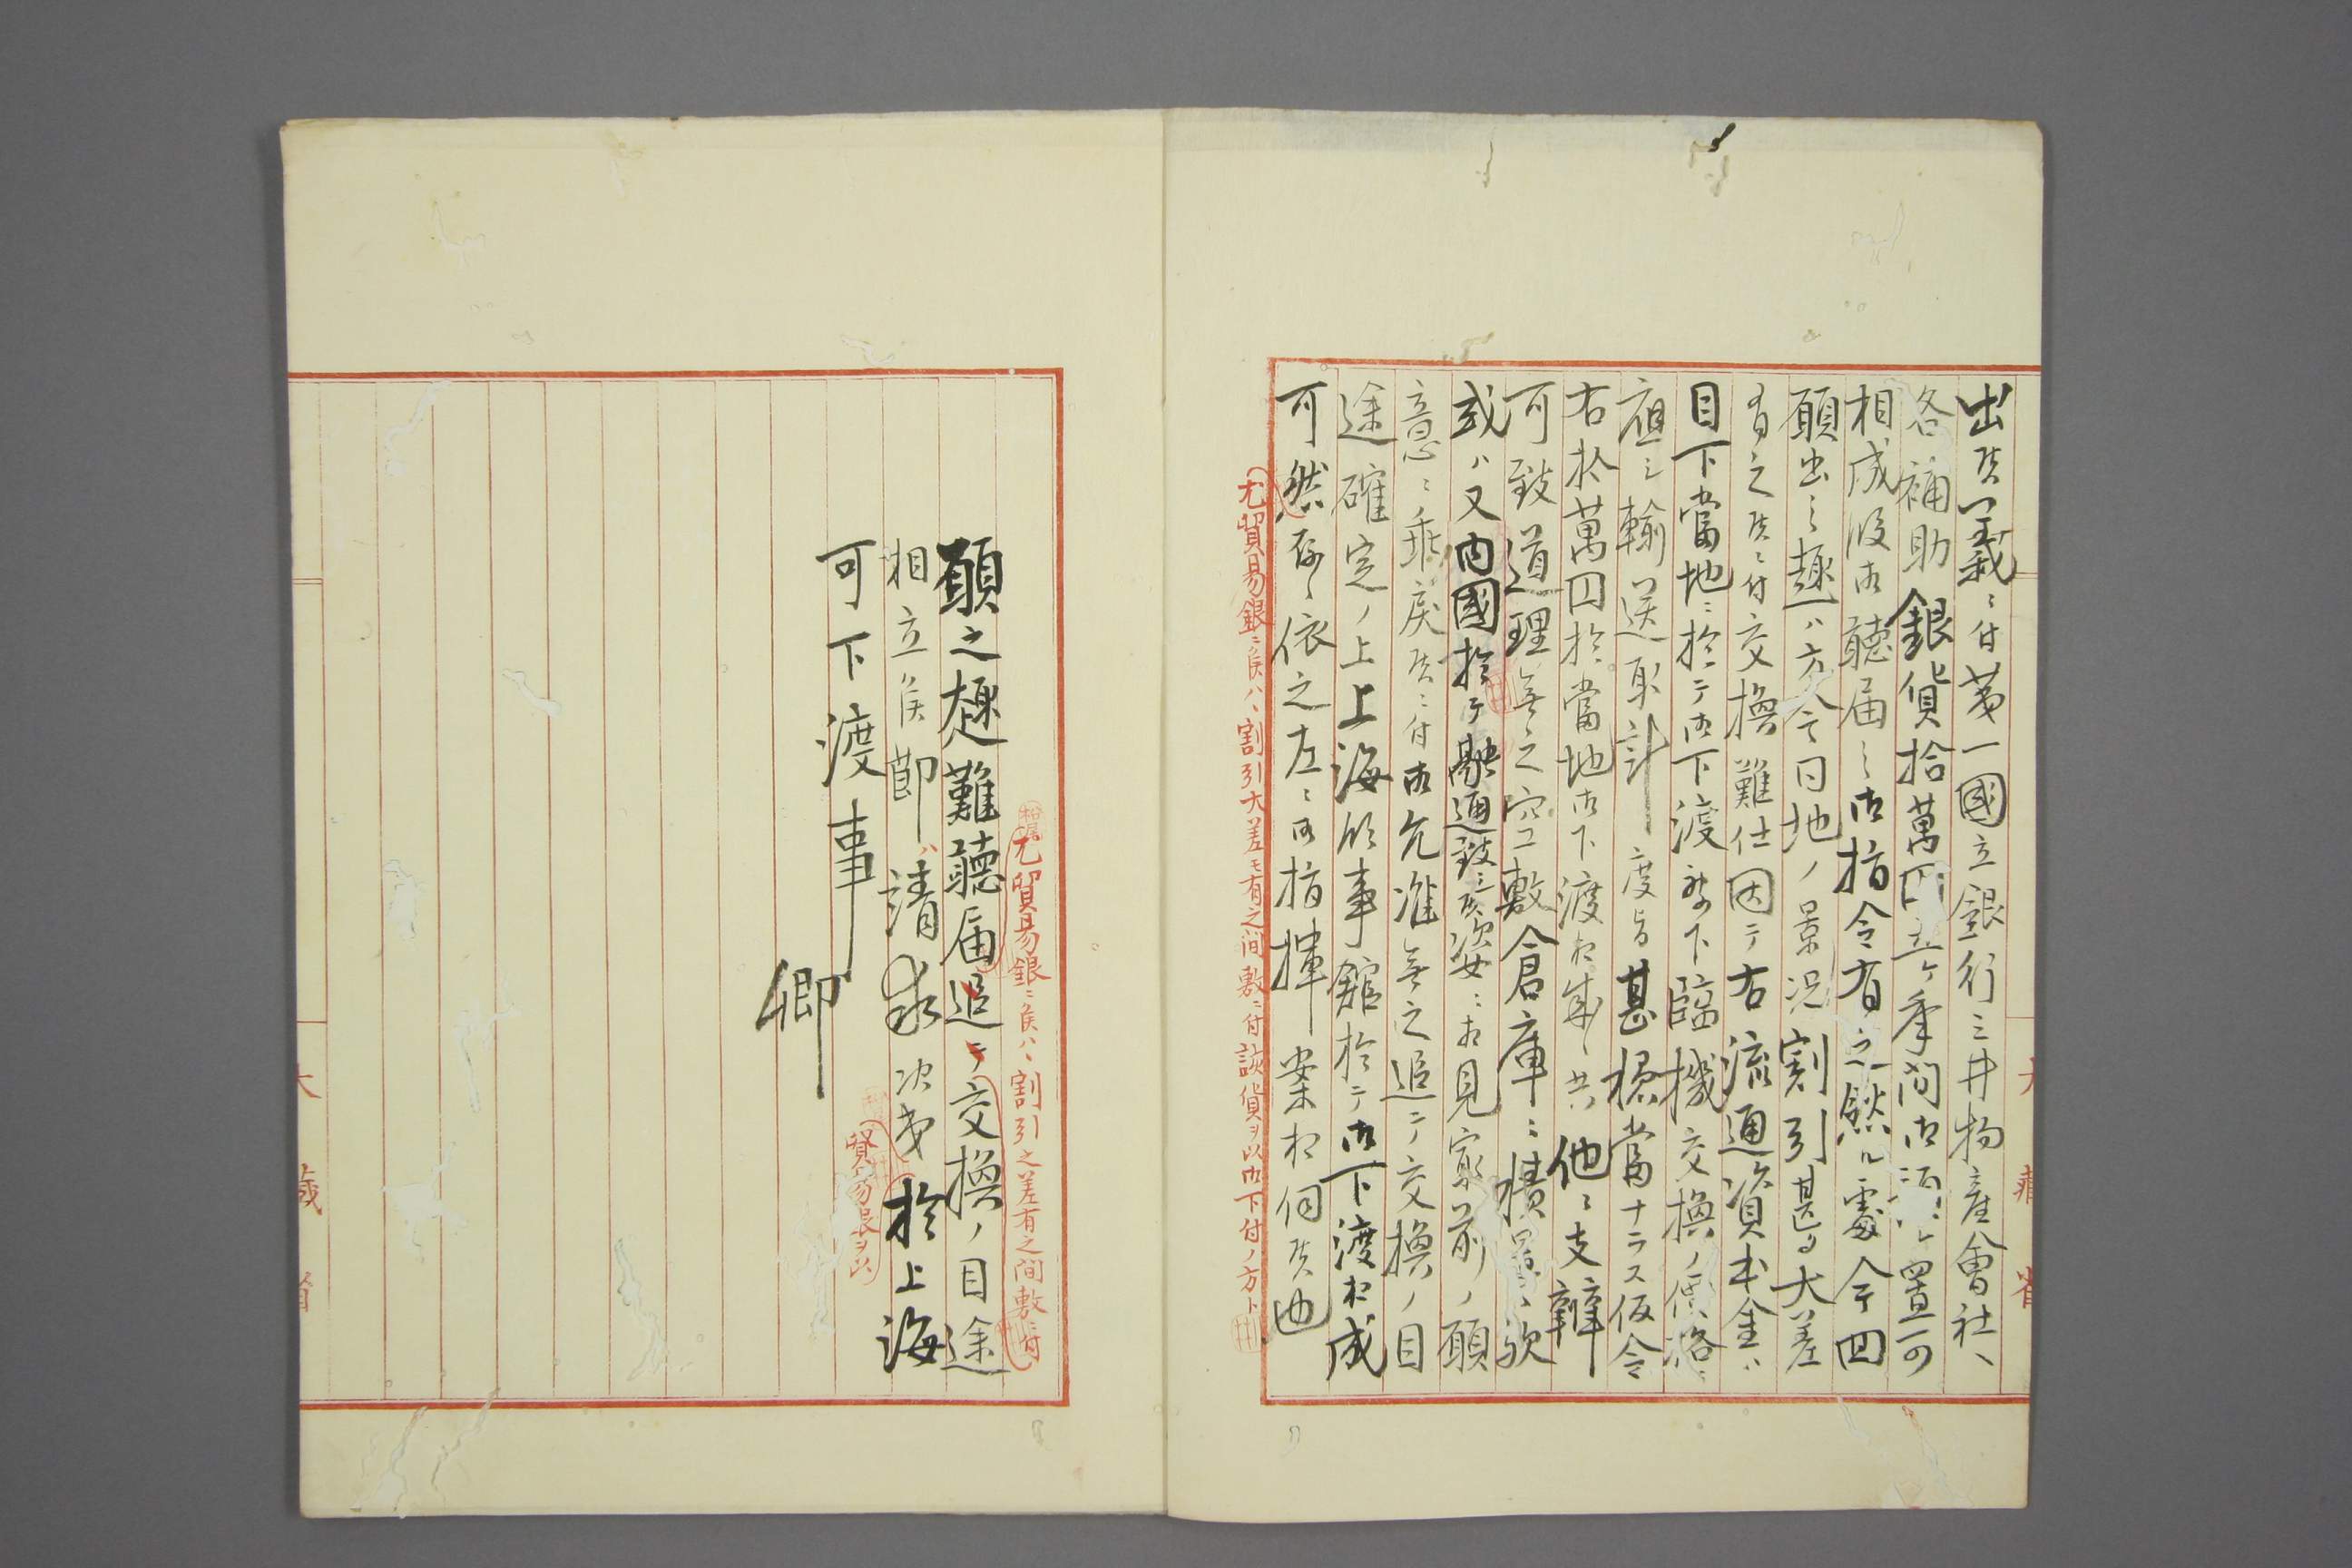 出候義ニ付第一國立銀行三井物産會社ヘ
各補助銀貨拾萬円五ケ季間御預ケ置可
相成段御聽届之御指令有之然ル處今四
願出之趣ハ方今同地ノ景況割引甚シク大差
有之候ニ付交換難仕因テ右流通資本金ハ
目下當地ニ於テ御下渡願下臨機交換ノ價格ニ
應シ輸送取計度旨甚穏當ナラス仮令
右拾萬円於當地御下渡相成候共他ニ支辨
可致道理無之空敷倉庫ニ積置候歟
或ハ又内國於テ融通致シ候姿ニ相見寂前ノ願
意ニ乖戻候ニ付御允准無之追テ交換ノ目
途確定ノ上上海領事館於テ御下渡相成
可然存候依之左ニ御指揮案相伺候也
尤貿易銀ニ候ハヽ割引大差モ有之間敷ニ付該貨ヲ以御下付ノ方ト
願之趣難聽届追テ交換ノ目途
尤貿易銀ニ候ハヽ割引之差有之間敷ニ付
相立候節ハ請求次第於上海
貿易銀ヲ以
可下渡事
卿
大藏省